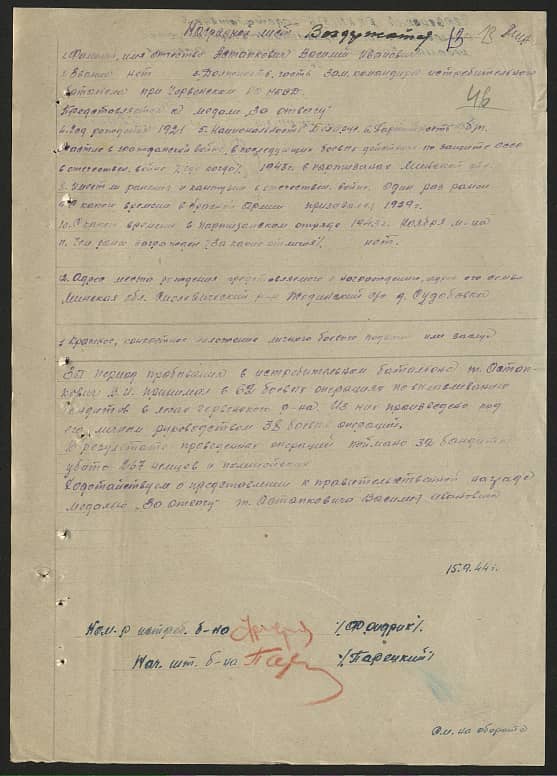 Наградной лист Воздержатся
1. Фамилия, имя отчество Астапкович Василий Иванович
2. Звание нет 3. Должность, часть Зам. командира истребительного
батальона при Червенском РО НКВД.
Представляется к медали „За отвагу"
4. Год рождения 1921 5. Национальность Беларус. 6. Партийность б/п.
7. Участие в гражданской войне, в последующих боевых действиях по защите СССР
в отечествен. войне /где когда/ 1943г. в партизанах Минской обл.
8. Имеет ли ранения и контузии в отечествен. войне. Один раз ранен
9. С какого времени в Красной Армии призывался 1929г.
10. С какого времени в партизанском отряде 1943г. ноября м-ца
11. Чем ранее награжден /за какие отличия/. нет.
46
12. Адрес место рождения представляемого к награждению, адрес его семьи
Минская обл. р-н с/с д. Судобовка
1. Краткое, конкретное изложение личного боевого подвига или заслуг
За период пребывания в истребительном батальоне т. Остап-
кович В.И. принимал в 62 боевых операциях по вылавливанию
бандитов в лесах Червенского р-на. Из них произведено под
его личным руководством 38 боевых операций.
В результате проведенных операций поймано 32 бандита,
убито 267 немцев и полицейских
Ходотайствуем о представлении к правительственной награде
медалью „За отвагу" т. Остапковича Василия Ивановича
15.9.44г.
Ком-р истреб. б-на /Фридрик/.
Нач. шт. б-на /Парецкий/
См. на обороте